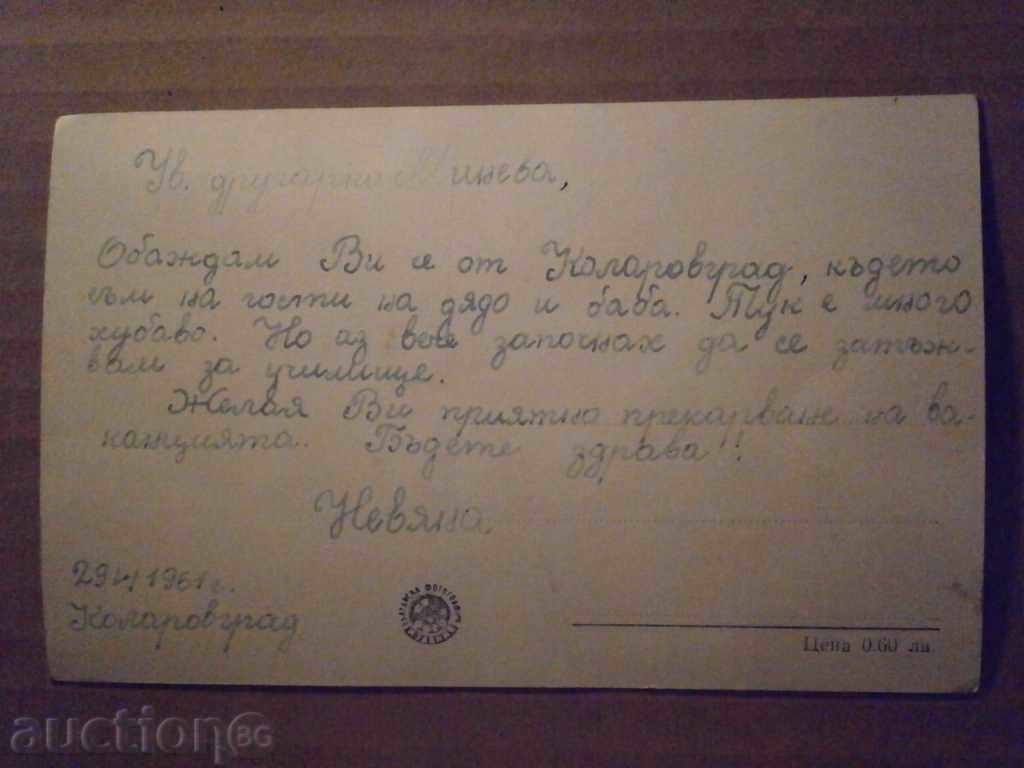 Ув. другарко Минева,
Обаждам Ви се от Коларовград, където
съм на гости на дядо и баба. Тук е много
хубаво. Но аз вече започнах да се затъж-
вам за училище.
Желая Ви приятно прекарване на ва-
канцията. Бъдете здрава!!
Невяна
1961 г.
Коларовград
Цена 0.60 лв.
auction BG